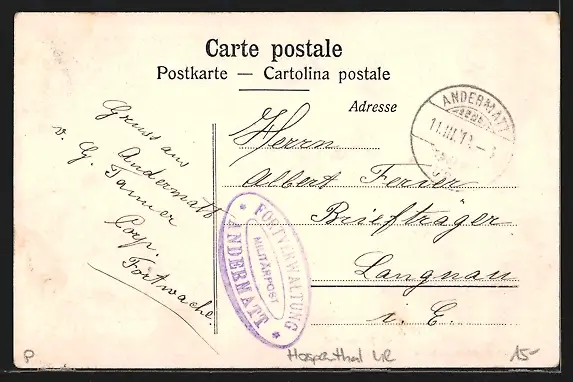 Carte postale
Postkarte — Cartolina postale
Adresse
ANDERMATT
11.III.1
Gruss aus
Andermatt
v. G. Tanner
Corp.
Fortwache.
Herrn
Albert Ferier
Briefträger
Langnau
i. E
* FORTVERWALTUNG *
MILITÄRPOST
ANDERMATT
P
Hospenthal UR
15-